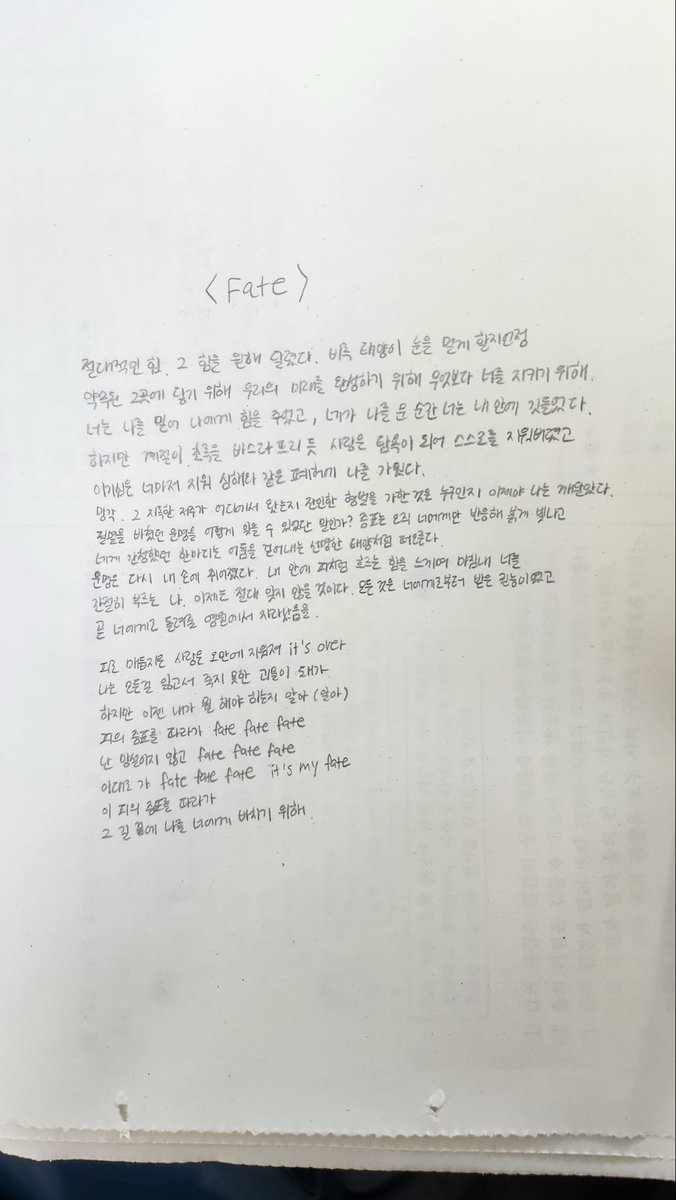 <Fate>
절대적인 힘. 그 힘을 원해 달렸다. 비록 태양이 눈을 멀게 할지언정
약속된 그곳에 닿기 위해 우리의 미래를 완성하기 위해 무엇보다 너를 지키기 위해.
너는 나를 믿어 나에게 힘을 주었고, 네가 나를 문 순간 너는 내 안에 깃들었다.
하지만 계절이 초록을 바스라트리듯 사랑은 탐욕이 되어 스스로를 지워버렸고
이기심은 너마저 지워 심해와 같은 폐허에 나를 가뒀다.
망각. 그 지독한 저주가 어디에서 왔는지 잔인한 형벌을 가한 것은 누구인지 이제야 나는 깨달았다.
칠흑을 비췄던 운명을 어떻게 잊을 수 있었단 말인가? 증표는 오직 너에게만 반응해 붉게 빛나고
네게 간청했던 한마디는 어둠을 걷어내는 선명한 태양처럼 떠오른다.
운명은 다시 내 손에 쥐어졌다. 내 안에 피처럼 흐르는 힘을 느끼며 마침내 너를
간절히 부르는 나. 이제는 절대 잊지 않을 것이다. 모든 것은 너에게로부터 받은 권능이었고
곧 너에게로 돌려줄 영원에서 자라났음을.
피로 매듭지은 사랑은 오만에 지워져 it's over
나는 모든걸 잃고서 죽지 못한 괴물이 돼가
하지만 이젠 내가 뭘 해야 하는지 알아 (알아)
피의 증표를 따라가 fate fate fate
난 망설이지 않고 fate fate fate
이대로 가 fate fate fate it's my fate
이 피의 증표를 따라가
그 길 끝에 나를 너에게 바치기 위해.